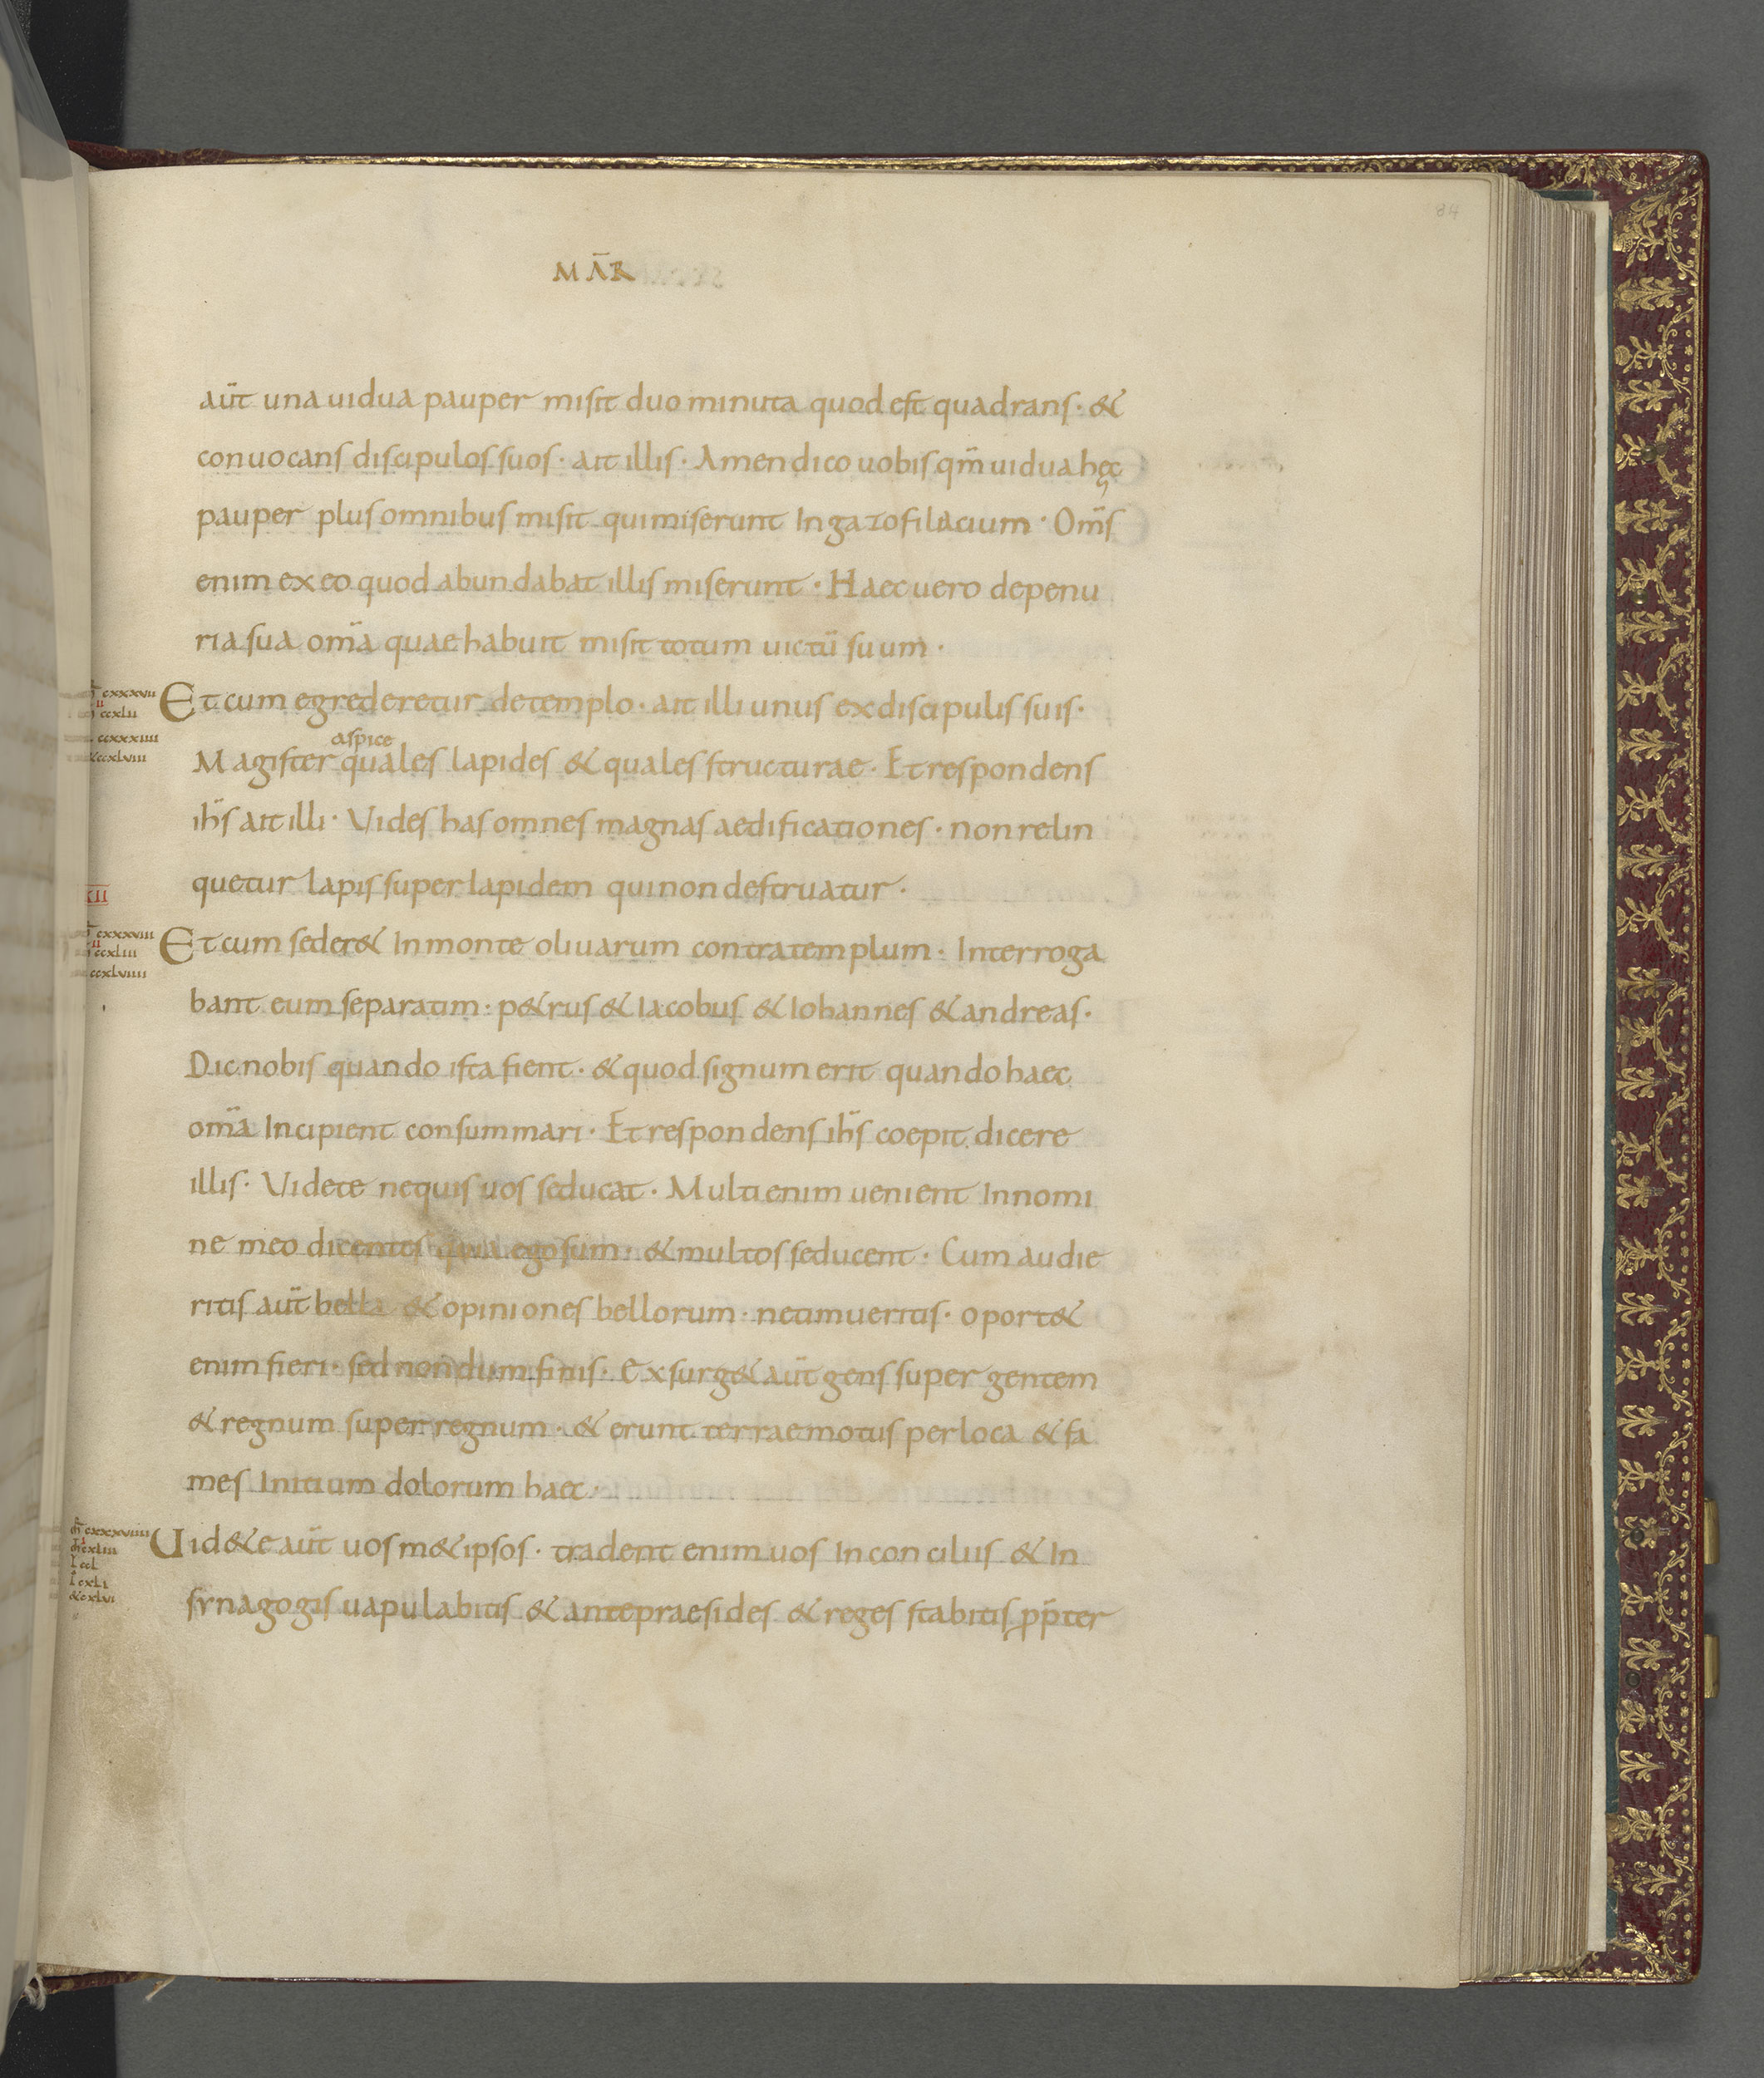 84
MĀR
aūt una uidua pauper misit duo minuta quod est quadrans · &
conuocans discipulos suos · ait illis · Amen dico uobis qm̄ uidua hęc
pauper plus omnibus misit qui miserunt In gazofilacium · Om̄s
enim ex eo quod abundabat illis miserunt · Haec uero de penu
ria sua om̄a quae habuit misit totum uictū suum ·
cxxxvii
II
ccxlii
ccxxxiiii
ccxlviii
Et cum egrederetur de templo · ait illi unus ex discipulis suis ·
aspice
Magister quales lapides & quales structurae · Et respondens
ih̄s ait illi · Vides has omnes magnas aedificationes · non relin
quetur lapis super lapidem qui non destruatur ·
XII
cxxxviii
II
ccxliii
ccxlviiii
Et cum seder& In monte oliuarum contra templum · Interroga
bant eum separatim · p&rus & Iacobus & Iohannes & andreas ·
Dic nobis quando ista fient · & quod signum erit quando haec
om̄a Incipient consummari · Et respondens ih̄s coepit dicere
illis · Videte nequis uos seducat · Multi enim uenient In nomi
ne meo dicentes quia ego sum · & multos seducent · Cum audie
ritis aūt bella & opiniones bellorum · ne timueritis · oport&
enim fieri · sed nondum finis · Exsurg& aūt gens super gentem
& regnum super regnum · & erunt terrae motus per loca & fa
mes Initium dolorum haec ·
cxxxviiii
I ccL
I cxLI
&cxlvi
Uid&e aūt uos m&ipsos · tradent enim uos In conciliis & In
synagogis uapulabitis & ante praesides & reges stabitis pp̄ter